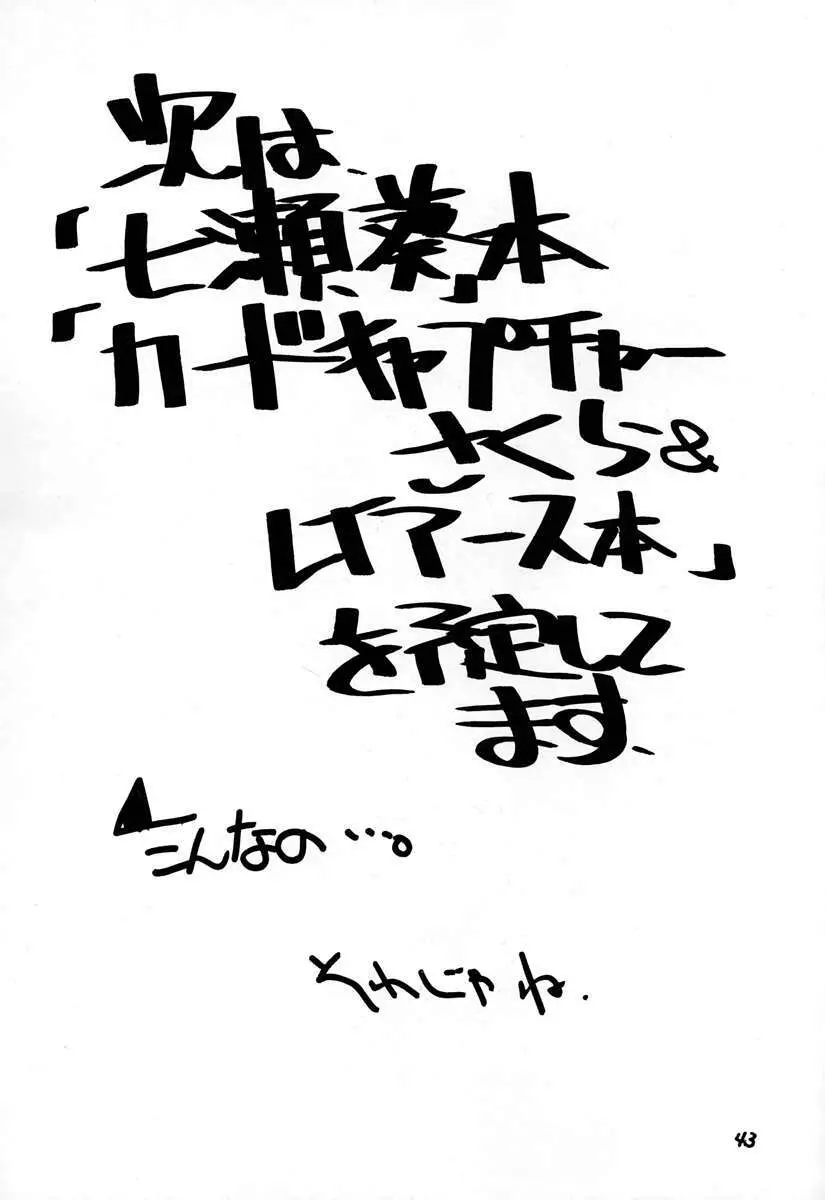 次は、
「七瀬葵」本
「カードキャプチャー
さくら&
レイアース本」
を予定して
ます、
こんなの…。
それじゃね.
43